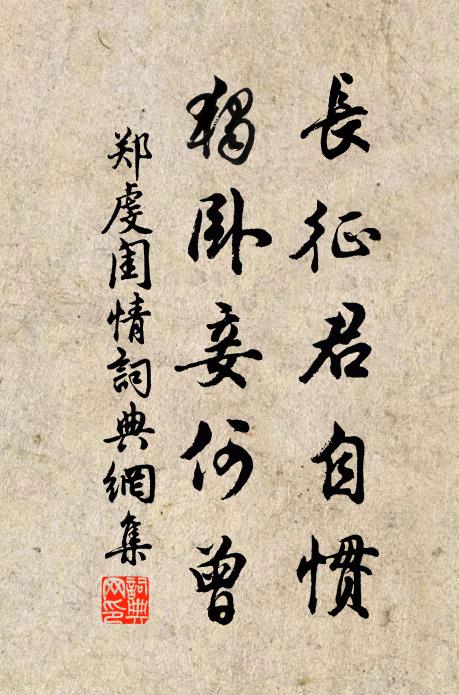 長征君自慣
獨臥妾何曾
郑虔闺情詞典網集
詞典网印